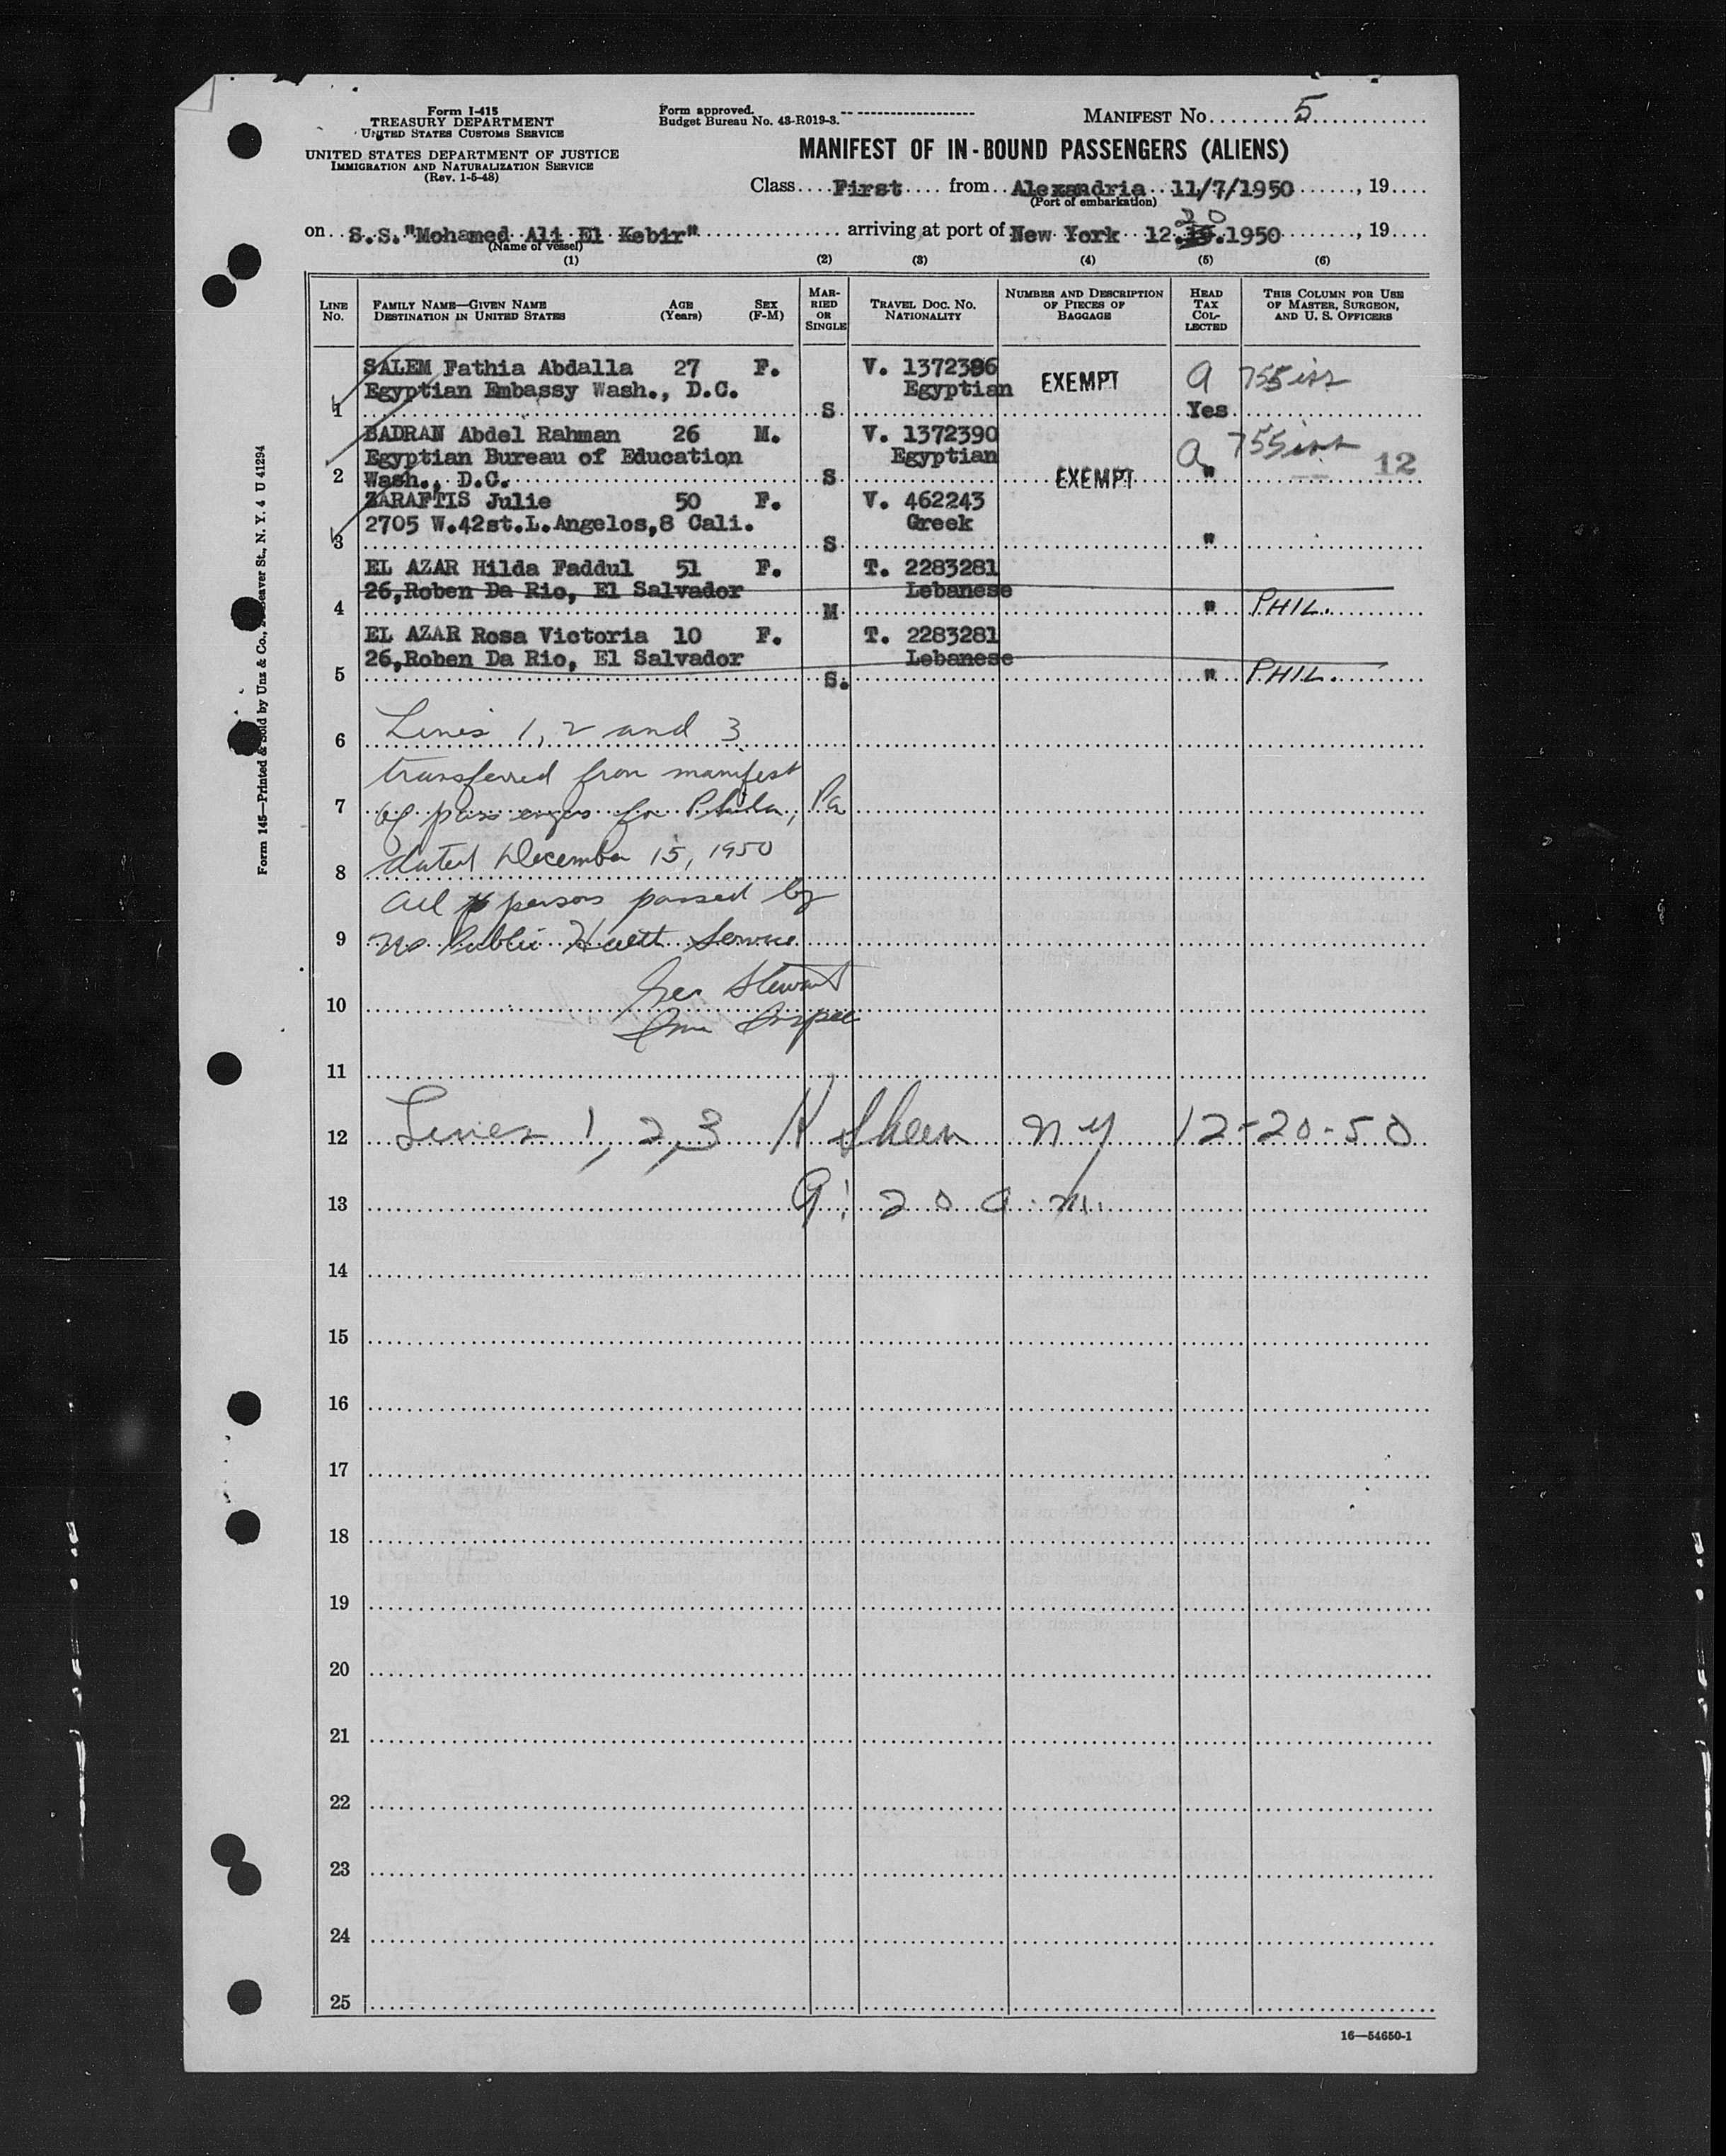 Form I-415
TREASURY DEPARTMENT
UNITED STATES CUSTOMS SERVICE
UNITED STATES DEPARTMENT OF JUSTICE
IMMIGRATION AND NATURALIZATION SERVICE
(Rev. 1-5-48)
Form approved.
Budget Bureau No. 43-R019-3.
MANIFEST No. 5
MANIFEST OF IN-BOUND PASSENGERS (ALIENS)
Class First from Alexandria 11/7/1950, 19
(Port of embarkation)
20
on S.S."Mohamed Ali El Kebir" arriving at port of New York 12.19.1950, 19
(Name of vessel)
(1) (2) (3) (4) (5) (6)
LINE NO. FAMILY NAME—GIVEN NAME DESTINATION IN UNITED STATES AGE (Years) SEX (F-M) MARRIED OR SINGLE TRAVEL DOC. NO. NATIONALITY NUMBER AND DESCRIPTION OF PIECES OF BAGGAGE HEAD TAX COLLECTED THIS COLUMN FOR USE OF MASTER, SURGEON, AND U. S. OFFICERS
SALEM Fathia Abdalla 27 F. V. 1372396
Egyptian Embassy Wash., D.C. Egyptian EXEMPT a 755
1 S Yes
BADRAN Abdel Rahman 26 M. V. 1372390
Egyptian Bureau of Education Egyptian a 755
2 Wash., D.C. S EXEMPT " 12
ZARAFTIS Julie 50 F. V. 462243
2705 W.42st.L.Angelos,8 Cali. Greek
3 S "
EL AZAR Hilda Faddul 51 F. T. 2283281
26,Roben Da Rio, El Salvador Lebanese
4 M " PHIL.
EL AZAR Rosa Victoria 10 F. T. 2283281
26,Roben Da Rio, El Salvador Lebanese
5 S. " PHIL.
6 Lines 1, 2 and 3
transferred from manifest
7 of passengers for Phila, Pa
8 dated December 15, 1950
all persons passed by
9 US Public Health Service
10 Geo Stewart
Imm Inspec
11
12 Lines 1, 2, 3 H Sheen NY 12-20-50
13 9:20 a.m.
14
15
16
17
18
19
20
21
22
23
24
25
16—54650-1
Form 145—Printed & Sold by Unz & Co., Beaver St., N. Y. 4 U 41294